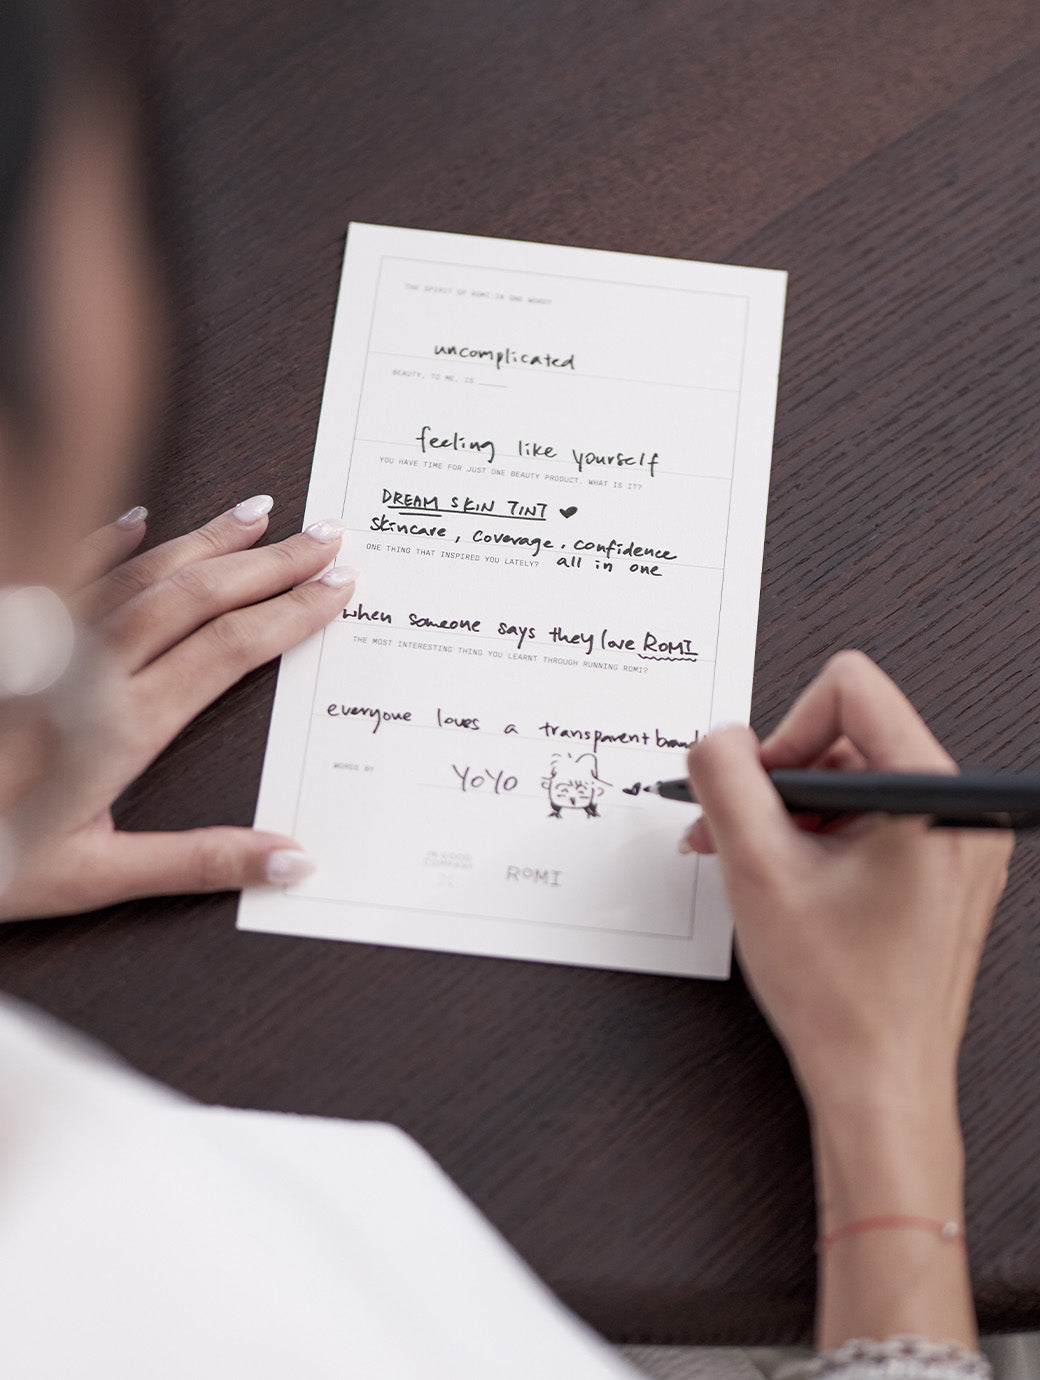 THE SPIRIT OF ROMI IN ONE WORD?
uncomplicated
BEAUTY, TO ME, IS ______
feeling like yourself
YOU HAVE TIME FOR JUST ONE BEAUTY PRODUCT. WHAT IS IT?
DREAM SKIN TINT ♥
skincare, coverage, confidence
all in one
ONE THING THAT INSPIRED YOU LATELY?
when someone says they love ROMI
THE MOST INTERESTING THING YOU LEARNT THROUGH RUNNING ROMI?
everyone loves a transparent brand
WORDS BY
YoYo
IN GOOD
COMPANY
ROMI